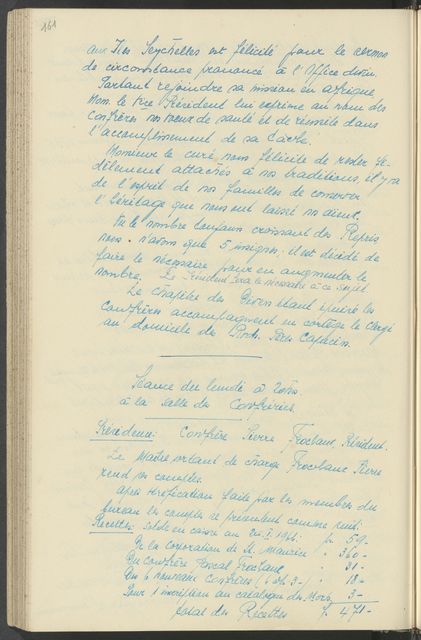 161
aux Iles Seychelles est félicité pour le sermon
de circonstance prononcé à l'Office divin.
Partant rejoindre sa mission en Afrique
Mons. le Vice Président lui exprime au nom des
Confrères nos vœux de santé et de réussite dans
l'accomplissement de sa tâche.
Monsieur le curé nous félicite de rester fi-
dèlement attachés à nos traditions, il y va
de l'esprit de nos familles de conserver
l'héritage que nous ont laissé nos aïeux.
Vu le nombre toujours croissant des
nous n'avons que 5 insignes, il est décidé de
faire le nécessaire pour en augmenter le
nombre. Le Président fera le nécessaire à ce sujet
Le chapitre des Divers étant épuisé les
confrères accompagnent en cortège le clergé
au domicile des Rvds. Pères Capucins.
Séance du lundi à
à la salle des Confréries
Présidence: Confrère Pierre Président.
Le Maître sortant de charge Pierre
rend ses comptes.
Après vérification faite par les membres du
bureau les comptes se présentent comme suit:
Recettes: solde en caisse au 1961: fr. 59.-
De la corporation de St. Maurice " 360.-
Du confrère Pascal " 31.-
Des 6 nouveaux confrères (6 à fr. 3.-) " 18.-
Pour 1 inscription au catalogue des Morts 3.-
Total des Recettes fr. 471.-